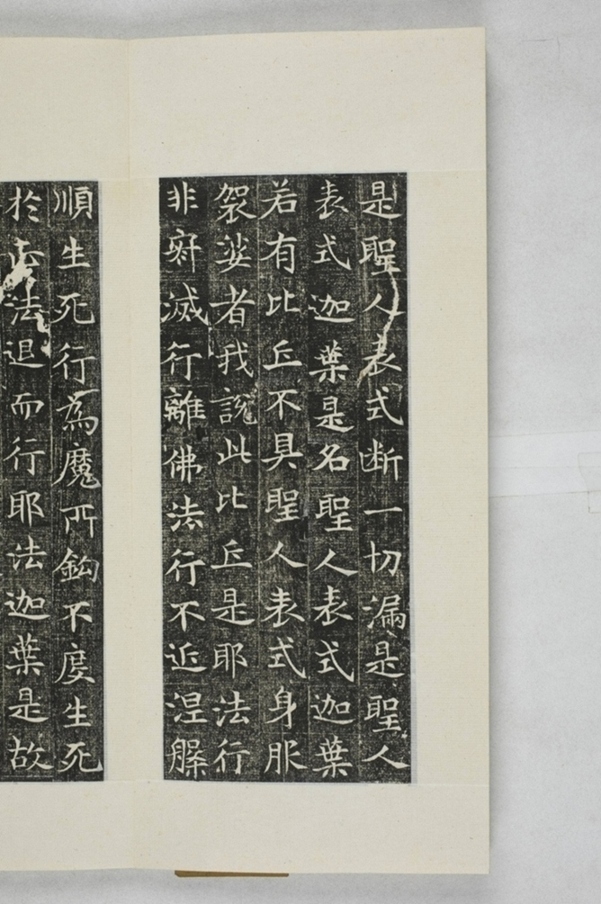 是聖人表式断一切漏是聖人
表式迦葉是名聖人表式迦葉
若有比丘不具聖人表式身服
袈裟者我說此比丘是耶法行
非寂滅行離佛法行不近涅槃
順生死行為魔所鈎不度生死
於正法退而行耶法迦葉是故